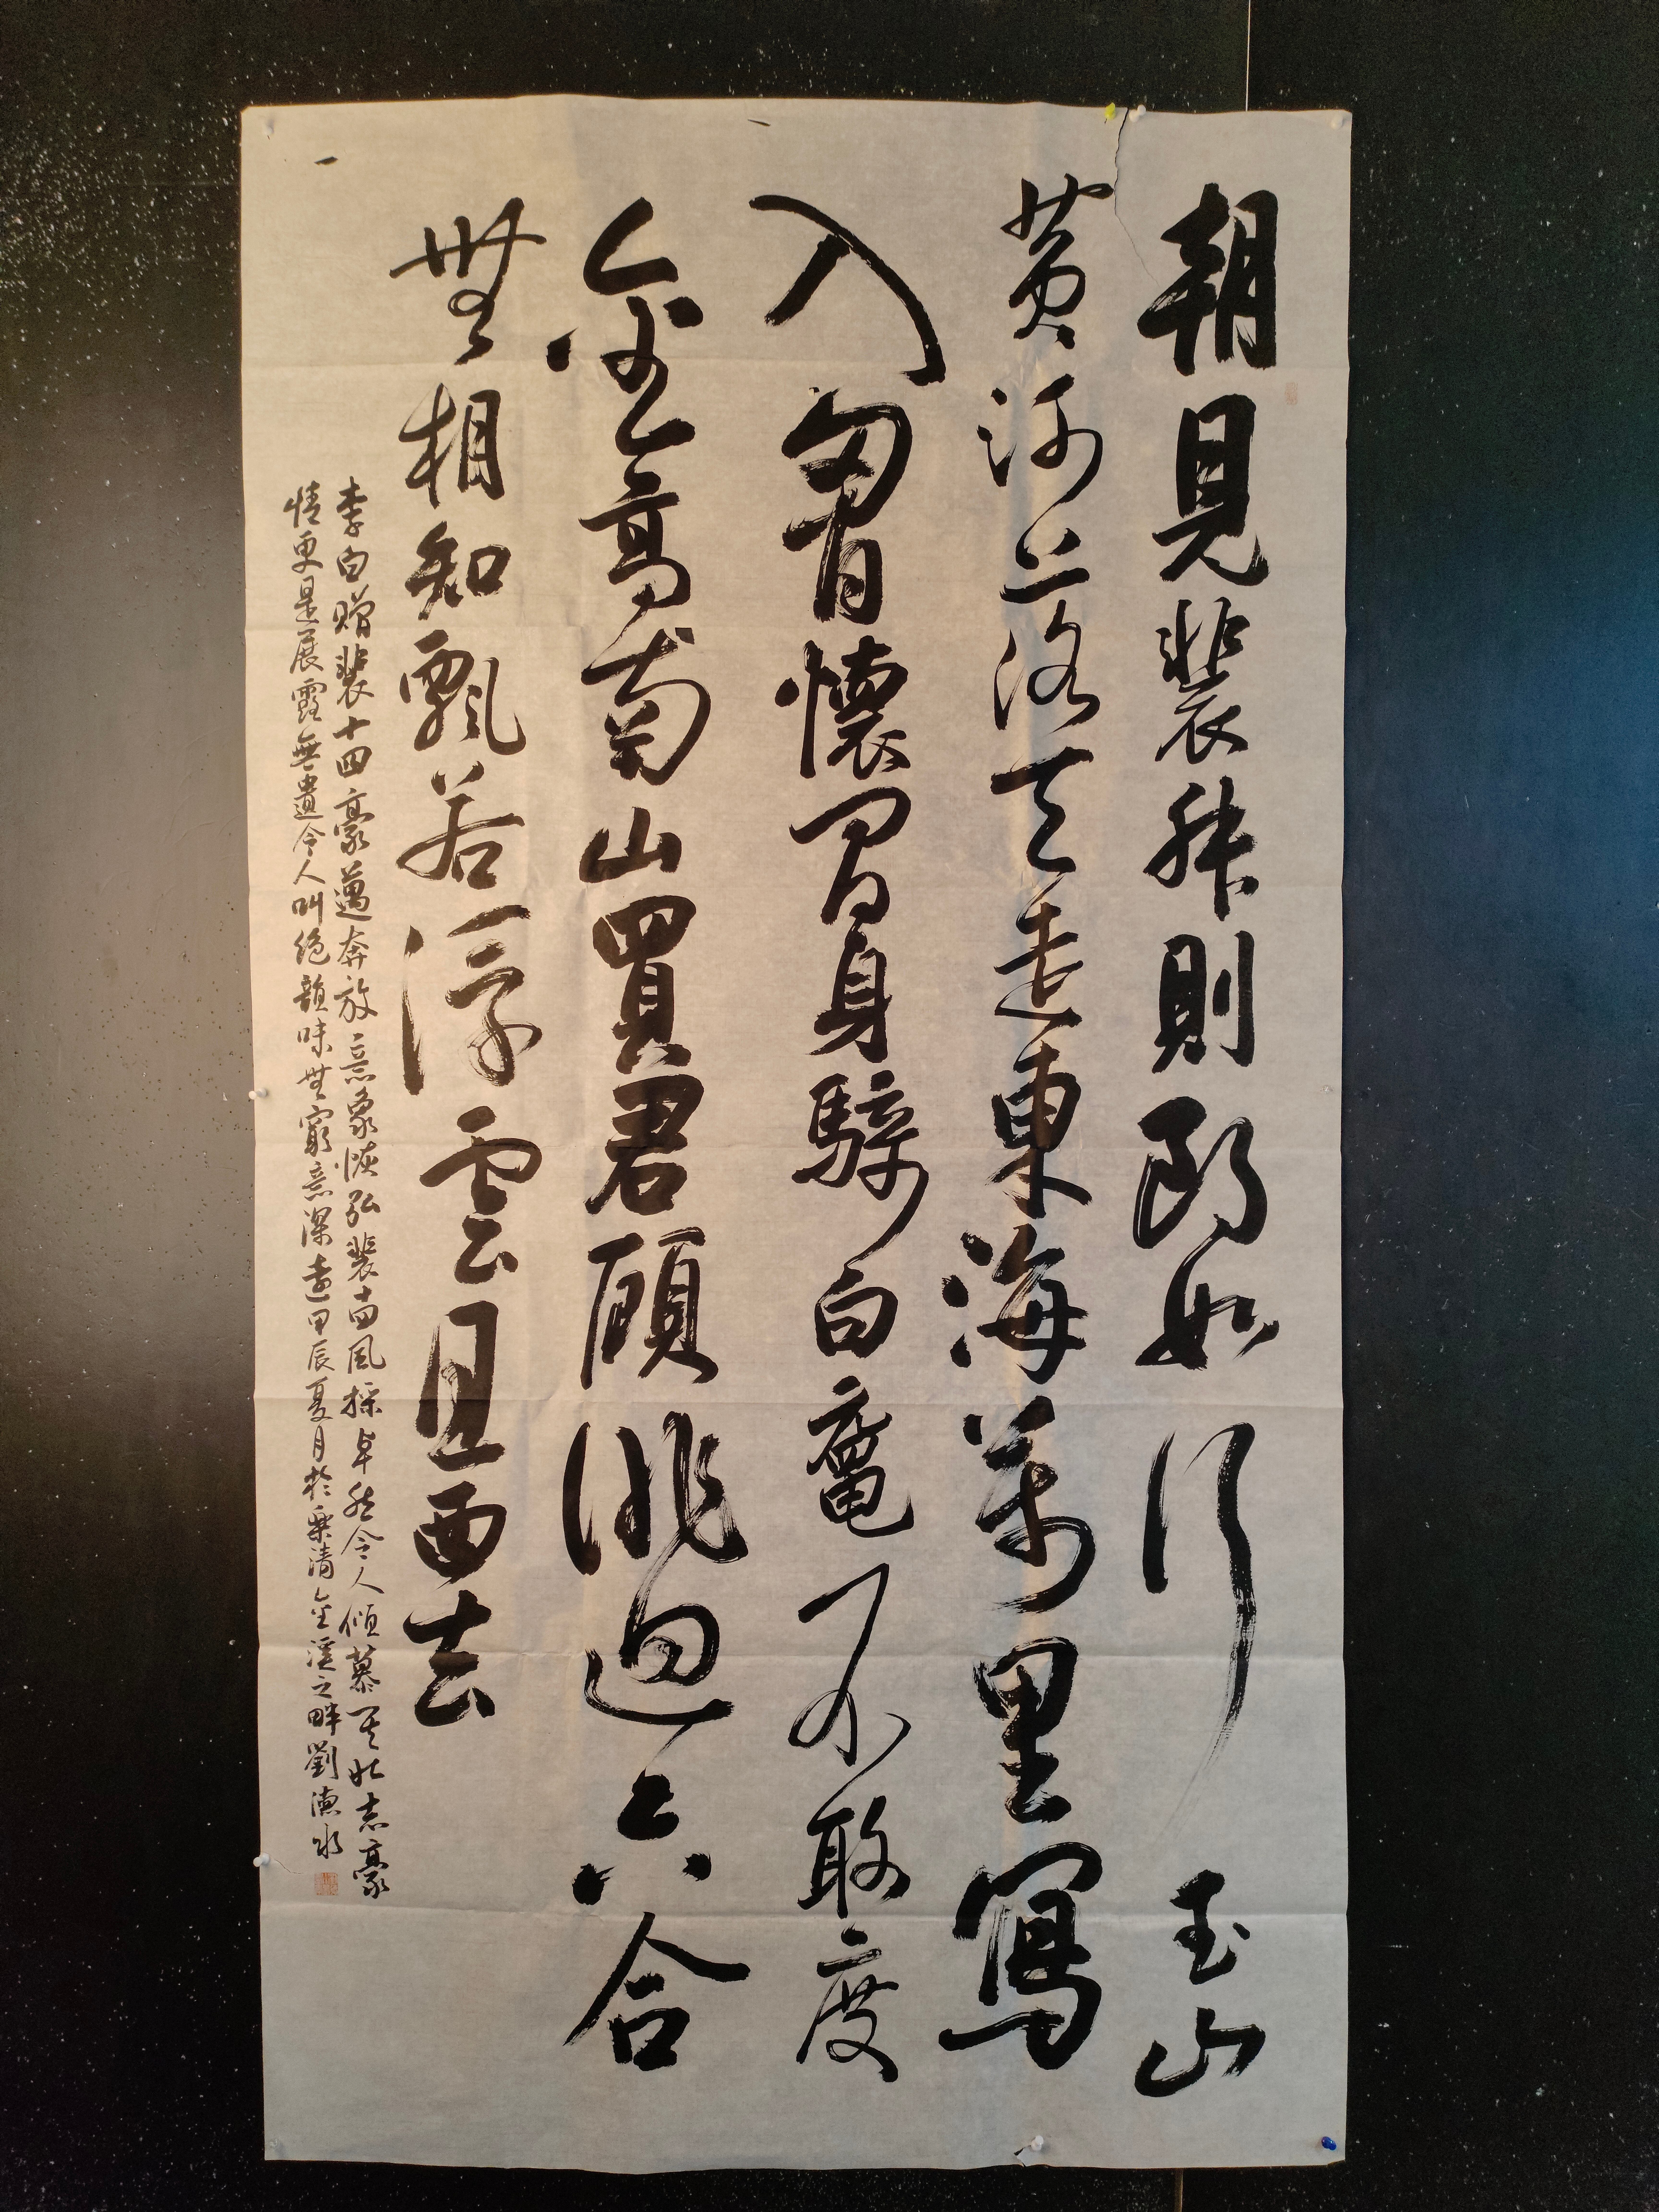 朝見裴叔則朗如行玉山
黃河落天走東海萬里寫
入胷懷間身騎白黿不敢度
金高南山買君顧徘迴六合
無相知飄若浮雲且西去
李白贈裴十四豪邁奔放意象恢弘裴十四風採卓然令人傾慕其壯志豪
情更是展露無遺令人叫絕韻味無窮意深遠甲辰夏月於樂清金溪之畔劉德水